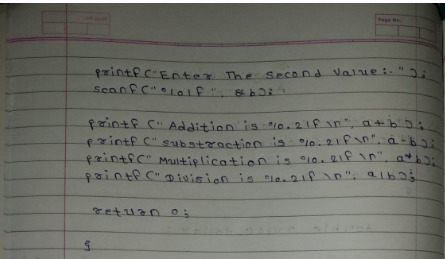 Page No.
printf("Enter The Second Value:. ");
scanf("%lf", &b);
printf (" Addition is %.2lf \n", a+b);
printf (" substraction is %.2lf \n", a-b);
printf(" Multiplication is %.2lf \n", a*b);
printf (" Division is %.2lf \n", a/b);
return 0;
}